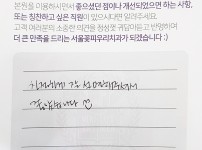 본원을 이용하시면서 좋으셨던 점이나 개선되었으면 하는 사항,
또는 칭찬하고 싶은 직원이 있으시다면 알려주세요.
고객 여러분의 소중한 의견을 정성껏 귀담아듣고 반영하여
더 큰 만족을 드리는 서울꽃피우리치과가 되겠습니다 :)
친절하게 잘 설명해주셔서
감사합니다 ♡